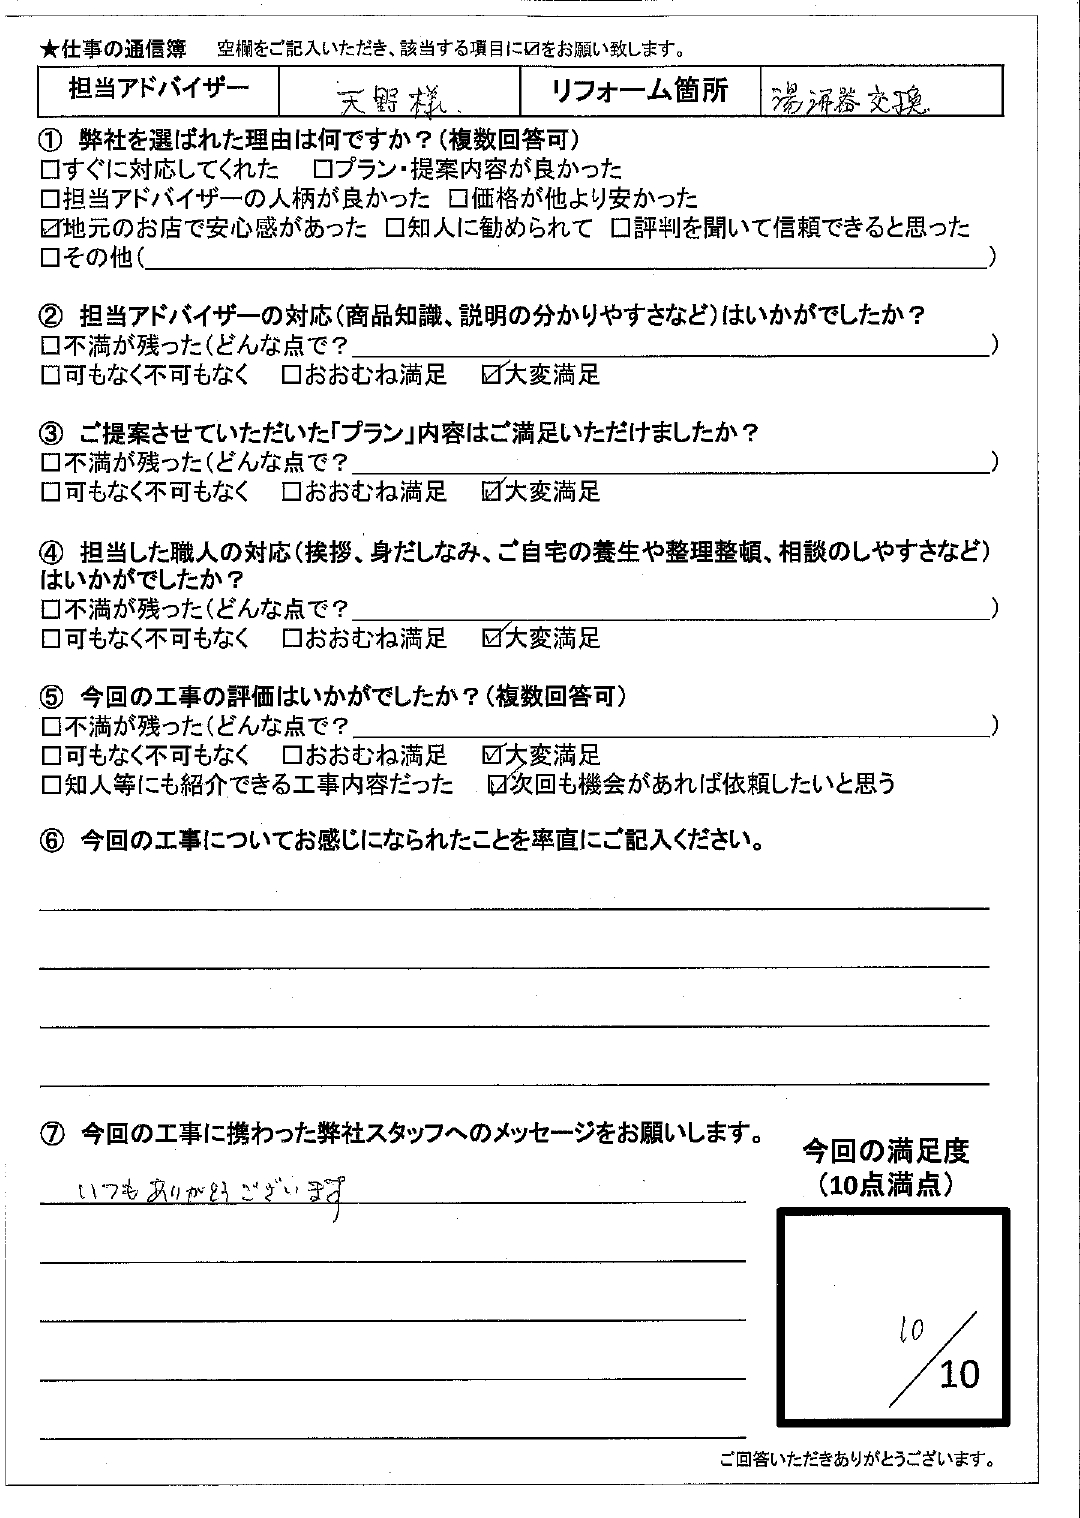 ★仕事の通信簿 空欄をご記入いただき、該当する項目に☑をお願い致します。
担当アドバイザー 天野様 リフォーム箇所 湯沸器交換
① 弊社を選ばれた理由は何ですか？(複数回答可)
□すぐに対応してくれた □プラン・提案内容が良かった
□担当アドバイザーの人柄が良かった □価格が他より安かった
☑地元のお店で安心感があった □知人に勧められて □評判を聞いて信頼できると思った
□その他( )
② 担当アドバイザーの対応(商品知識、説明の分かりやすさなど)はいかがでしたか？
□不満が残った(どんな点で？ )
□可もなく不可もなく □おおむね満足 ☑大変満足
③ ご提案させていただいた「プラン」内容はご満足いただけましたか？
□不満が残った(どんな点で？ )
□可もなく不可もなく □おおむね満足 ☑大変満足
④ 担当した職人の対応(挨拶、身だしなみ、ご自宅の養生や整理整頓、相談のしやすさなど)
はいかがでしたか？
□不満が残った(どんな点で？ )
□可もなく不可もなく □おおむね満足 ☑大変満足
⑤ 今回の工事の評価はいかがでしたか？(複数回答可)
□不満が残った(どんな点で？ )
□可もなく不可もなく □おおむね満足 ☑大変満足
□知人等にも紹介できる工事内容だった ☑次回も機会があれば依頼したいと思う
⑥ 今回の工事についてお感じになられたことを率直にご記入ください。
⑦ 今回の工事に携わった弊社スタッフへのメッセージをお願いします。
いつもありがとうございます
今回の満足度
(10点満点)
10/10
ご回答いただきありがとうございます。